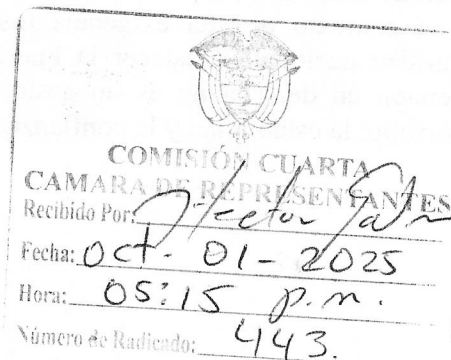 COMISIÓN CUARTA
CAMARA DE REPRESENTANTES
Recibido Por: Hector
Fecha: Oct - 01 - 2025
Hora: 05:15 p.m.
Número de Radicado: 443.